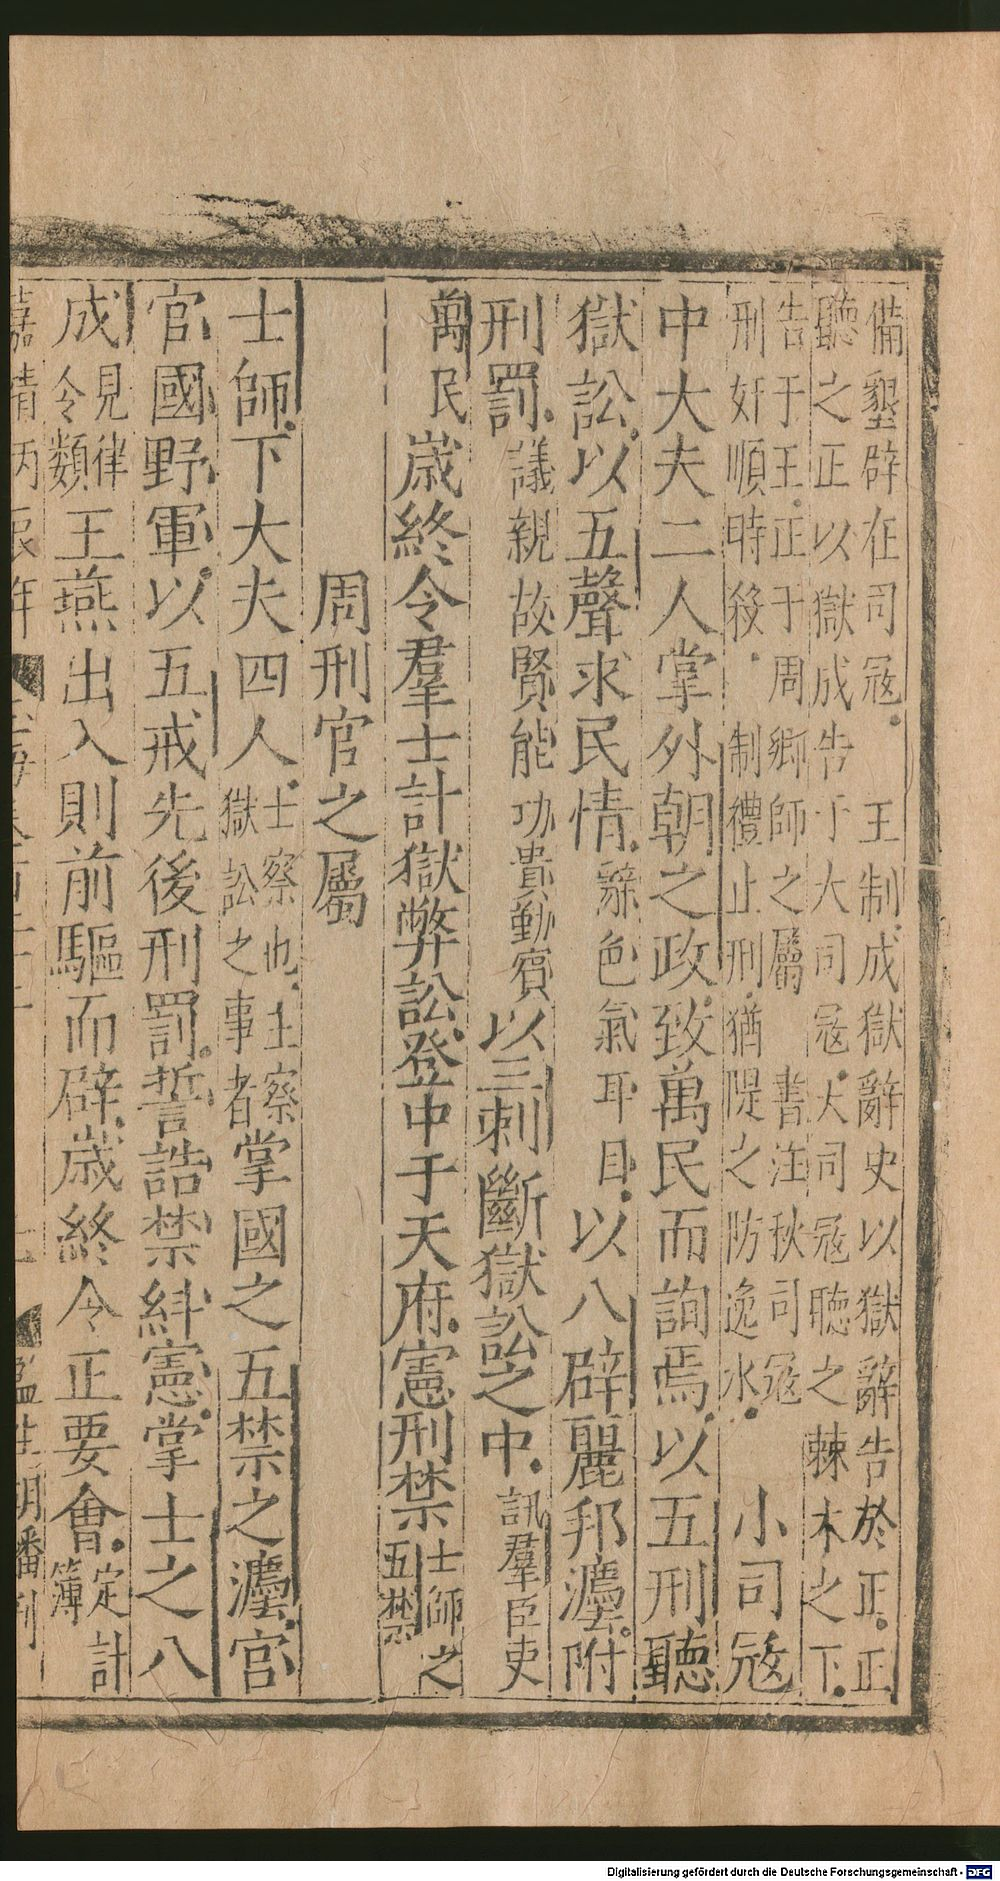 備墾辟在司冦。　王制。成獄辭史以獄辭告於正。正
聽之正以獄成告于大司冦。大司冦聴之棘木之下。
告于王。正于周鄉師之屬　書注秋司冦
刑奸順時殺。　制禮止刑。猶隄之防逸水。　小司冦
中大夫二人掌外朝之政致萬民而詢焉。以五刑聽
獄訟。以五聲求民情。辭色氣耳目。以八辟麗邦灋。附
刑罰。議親故賢能功貴勤賓以三刺斷獄訟之中。訊羣臣吏
萬民歳終令羣士計獄弊訟登中于天府。憲刑禁士師之
五禁
周刑官之屬
士師。下大夫四人。士察也。主察
獄訟之事者掌國之五禁之灋。官
官國野軍。以五戒先後刑罰。誓誥禁糾憲。掌士之八
成見律
令類王燕出入則前驅而辟。歳終令正要會。定計
簿
嘉靖丙辰年　　監生胡番刋
Digitalisierung gefördert durch die Deutsche Forschungsgemeinschaft - DFG